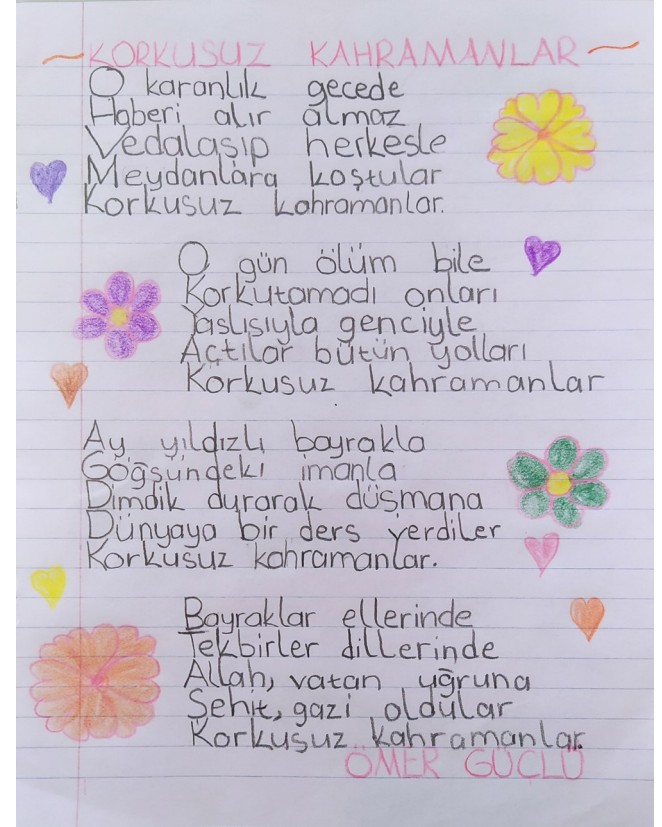 ~KORKUSUZ KAHRAMANLAR~
O karanlık gecede
Haberi alır almaz
Vedalaşıp herkesle
Meydanlara koştular
Korkusuz kahramanlar.
O gün ölüm bile
Korkutamadı onları
Yaşlısıyla genciyle
Açtılar bütün yolları
Korkusuz kahramanlar
Ay yıldızlı bayrakla
Göğsündeki imanla
Dimdik durarak düşmana
Dünyaya bir ders verdiler
Korkusuz kahramanlar.
Bayraklar ellerinde
Tekbirler dillerinde
Allah, vatan uğruna
Şehit, gazi oldular
Korkusuz kahramanlar.
ÖMER GÜÇLÜ